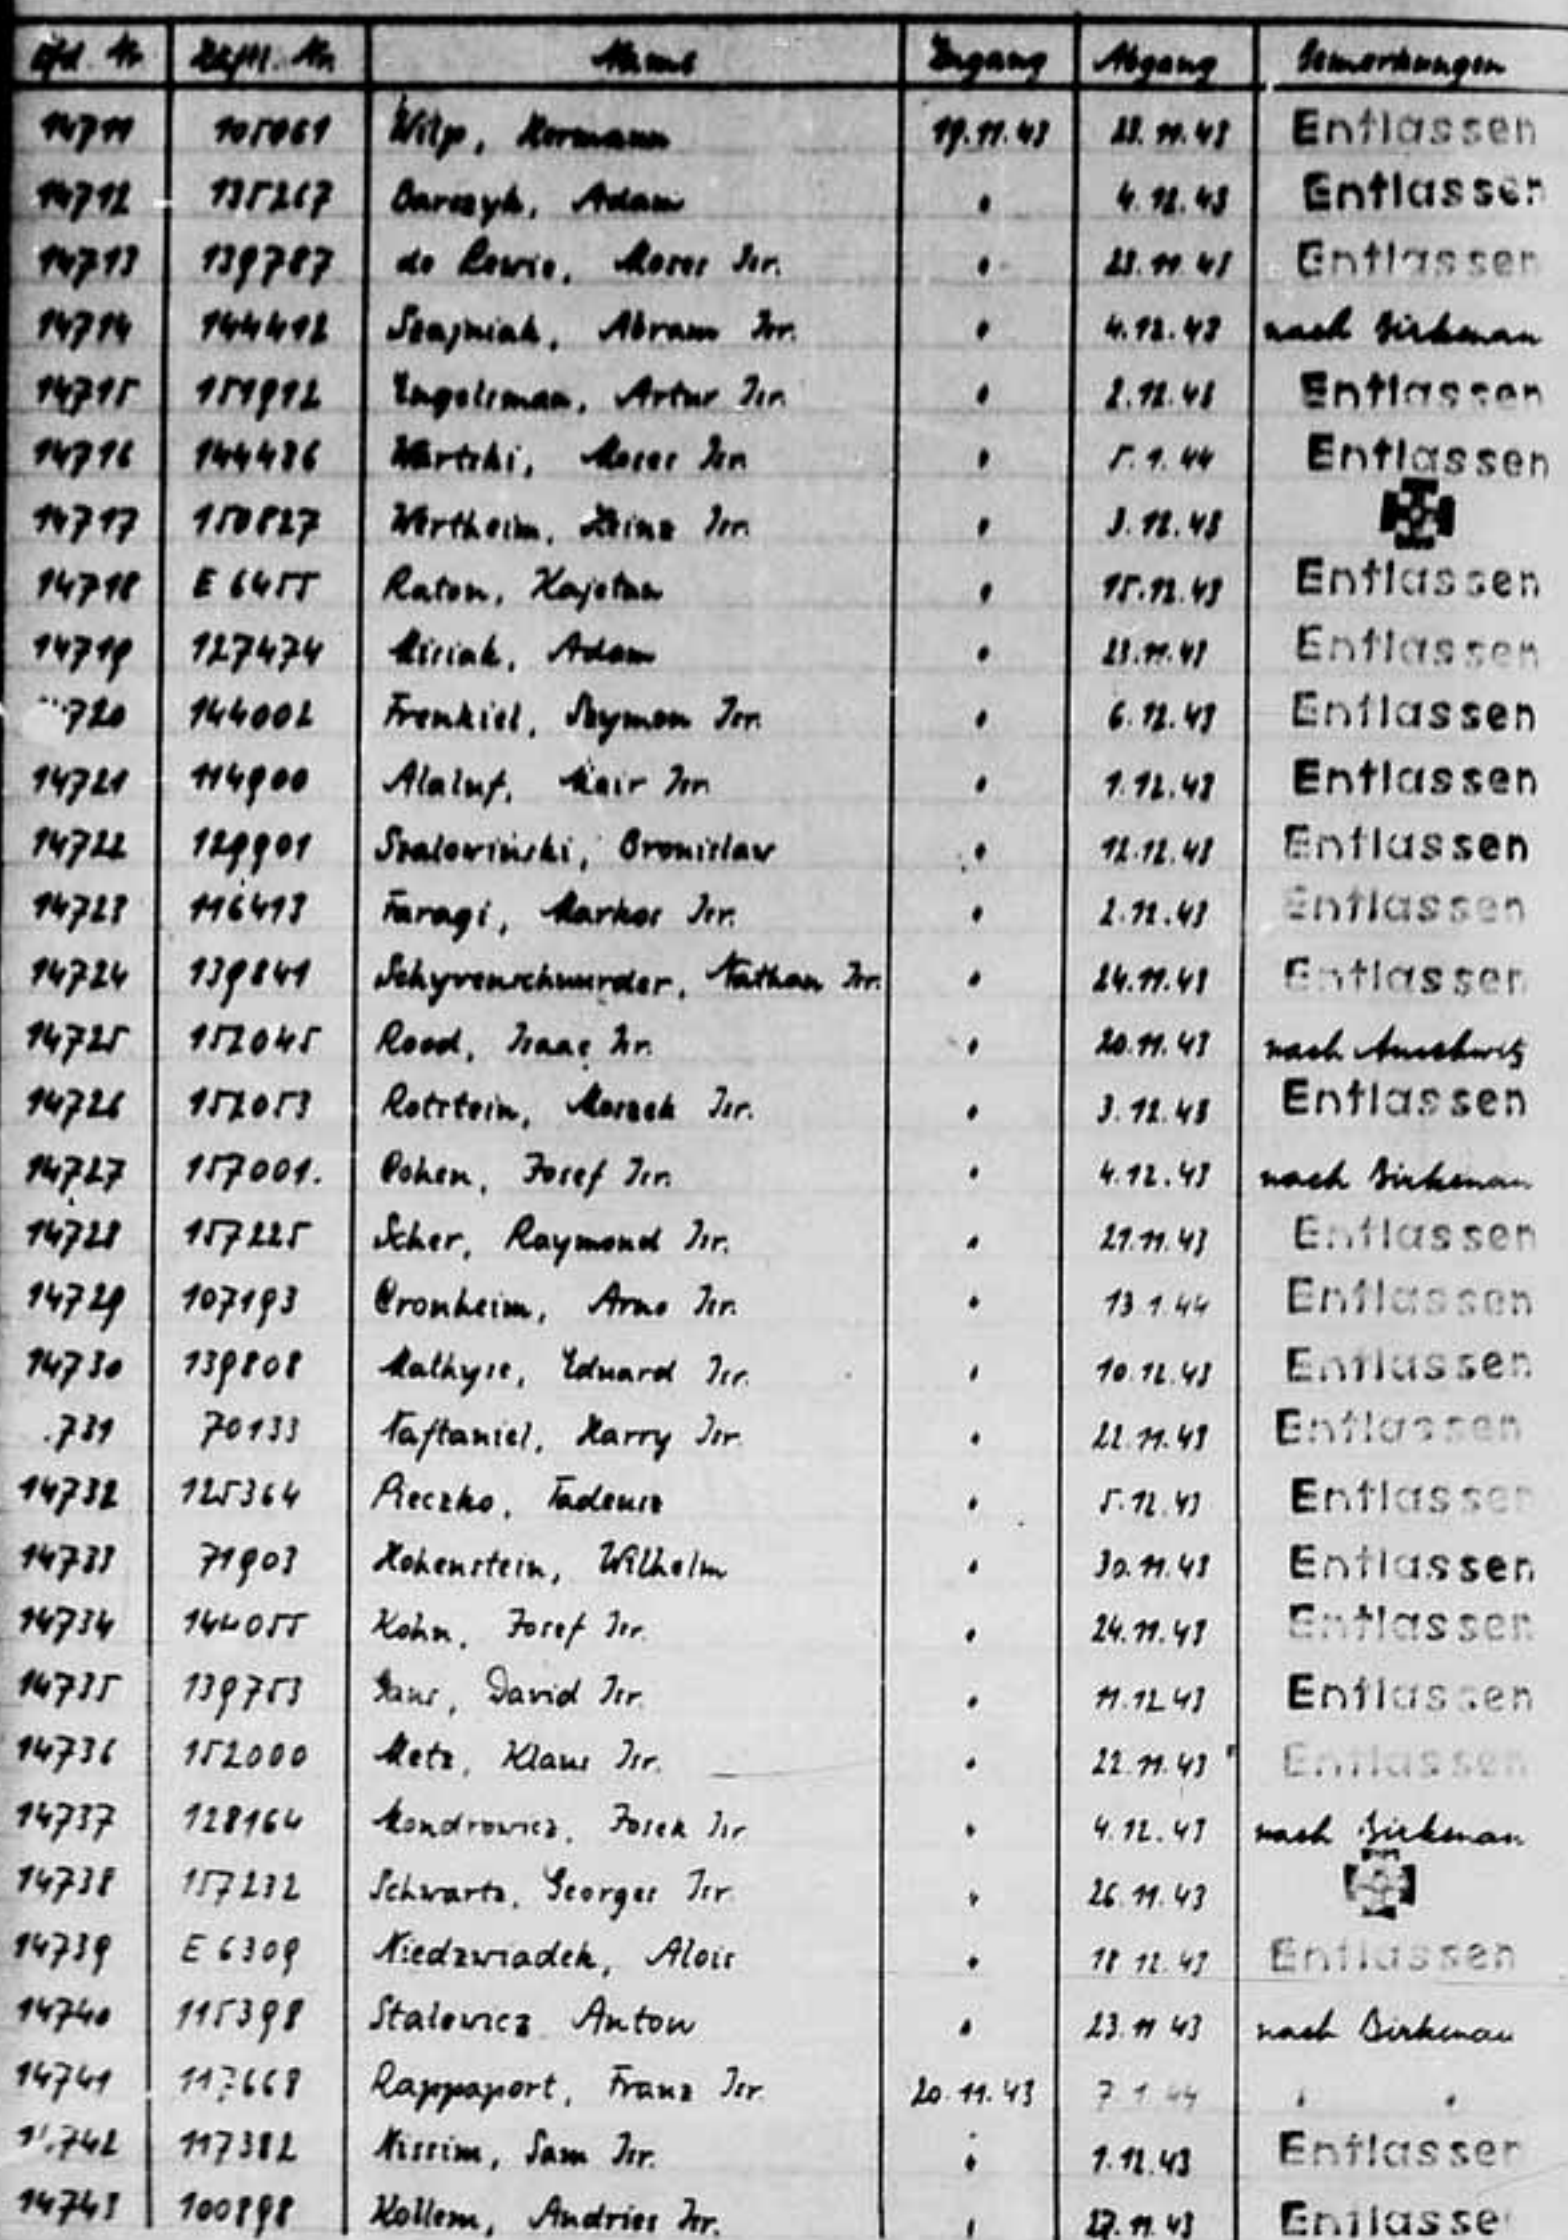 Lfd. Nr. Häftl. Nr. Name Zugang Abgang Bemerkungen
14711 105061 Wilp, Hermann 19.11.43 23.11.43 Entlassen
14712 135267 Barczyk, Adam " 4.12.43 Entlassen
14713 139787 de Lowie, Moses Isr. " 23.11.43 Entlassen
14714 144412 Szajniak, Abram Isr. " 4.12.43 nach Birkenau
14715 151912 Engelsman, Artur Isr. " 2.12.43 Entlassen
14716 144486 Wartski, Moses Isr. " 5.1.44 Entlassen
14717 150827 Wertheim, Heinz Isr. " 3.12.43
14718 E 6455 Raton, Kajetan " 15.12.43 Entlassen
14719 127474 Misiak, Adam " 23.11.43 Entlassen
720 144002 Frenkiel, Szymon Isr. " 6.12.43 Entlassen
14721 114900 Alaluf, Mair Isr. " 1.12.43 Entlassen
14722 129901 Szalowiński, Bronislaw " 12.12.43 Entlassen
14723 116413 Faragi, Markos Isr. " 2.12.43 Entlassen
14724 139841 Schyvenschuurder, Nathan Isr. " 24.11.43 Entlassen
14725 152045 Rood, Isaac Isr. " 20.11.43 nach Auschwitz
14726 152053 Rotstein, Moszek Isr. " 3.12.43 Entlassen
14727 157001. Cohen, Josef Isr. " 4.12.43 nach Birkenau
14728 157225 Scher, Raymond Isr. " 21.11.43 Entlassen
14729 107193 Cronheim, Arno Isr. " 13.1.44 Entlassen
14730 139808 Malhyse, Eduard Isr. " 10.12.43 Entlassen
731 70133 Naftaniel, Harry Isr. " 22.11.43 Entlassen
14732 125364 Pieczko, Tadeusz " 5.12.43 Entlassen
14733 71903 Hohenstein, Wilhelm " 30.11.43 Entlassen
14734 144055 Kohn, Josef Isr. " 24.11.43 Entlassen
14735 139753 Gans, David Isr. " 11.12.43 Entlassen
14736 152000 Metz, Klaus Isr. " 22.11.43 Entlassen
14737 128164 Mondrowicz, Josek Isr. " 4.12.43 nach Birkenau
14738 157232 Schwartz, Georges Isr. " 26.11.43
14739 E 6309 Niedzwiadek, Alois " 18.12.43 Entlassen
14740 115398 Stalowicz Anton " 23.11.43 nach Birkenau
14741 117668 Rappaport, Franz Isr. 20.11.43 7.1.44 " "
14742 117382 Nissim, Sam Isr. " 1.12.43 Entlassen
14743 100898 Kollem, Andries Isr. " 27.11.43 Entlassen